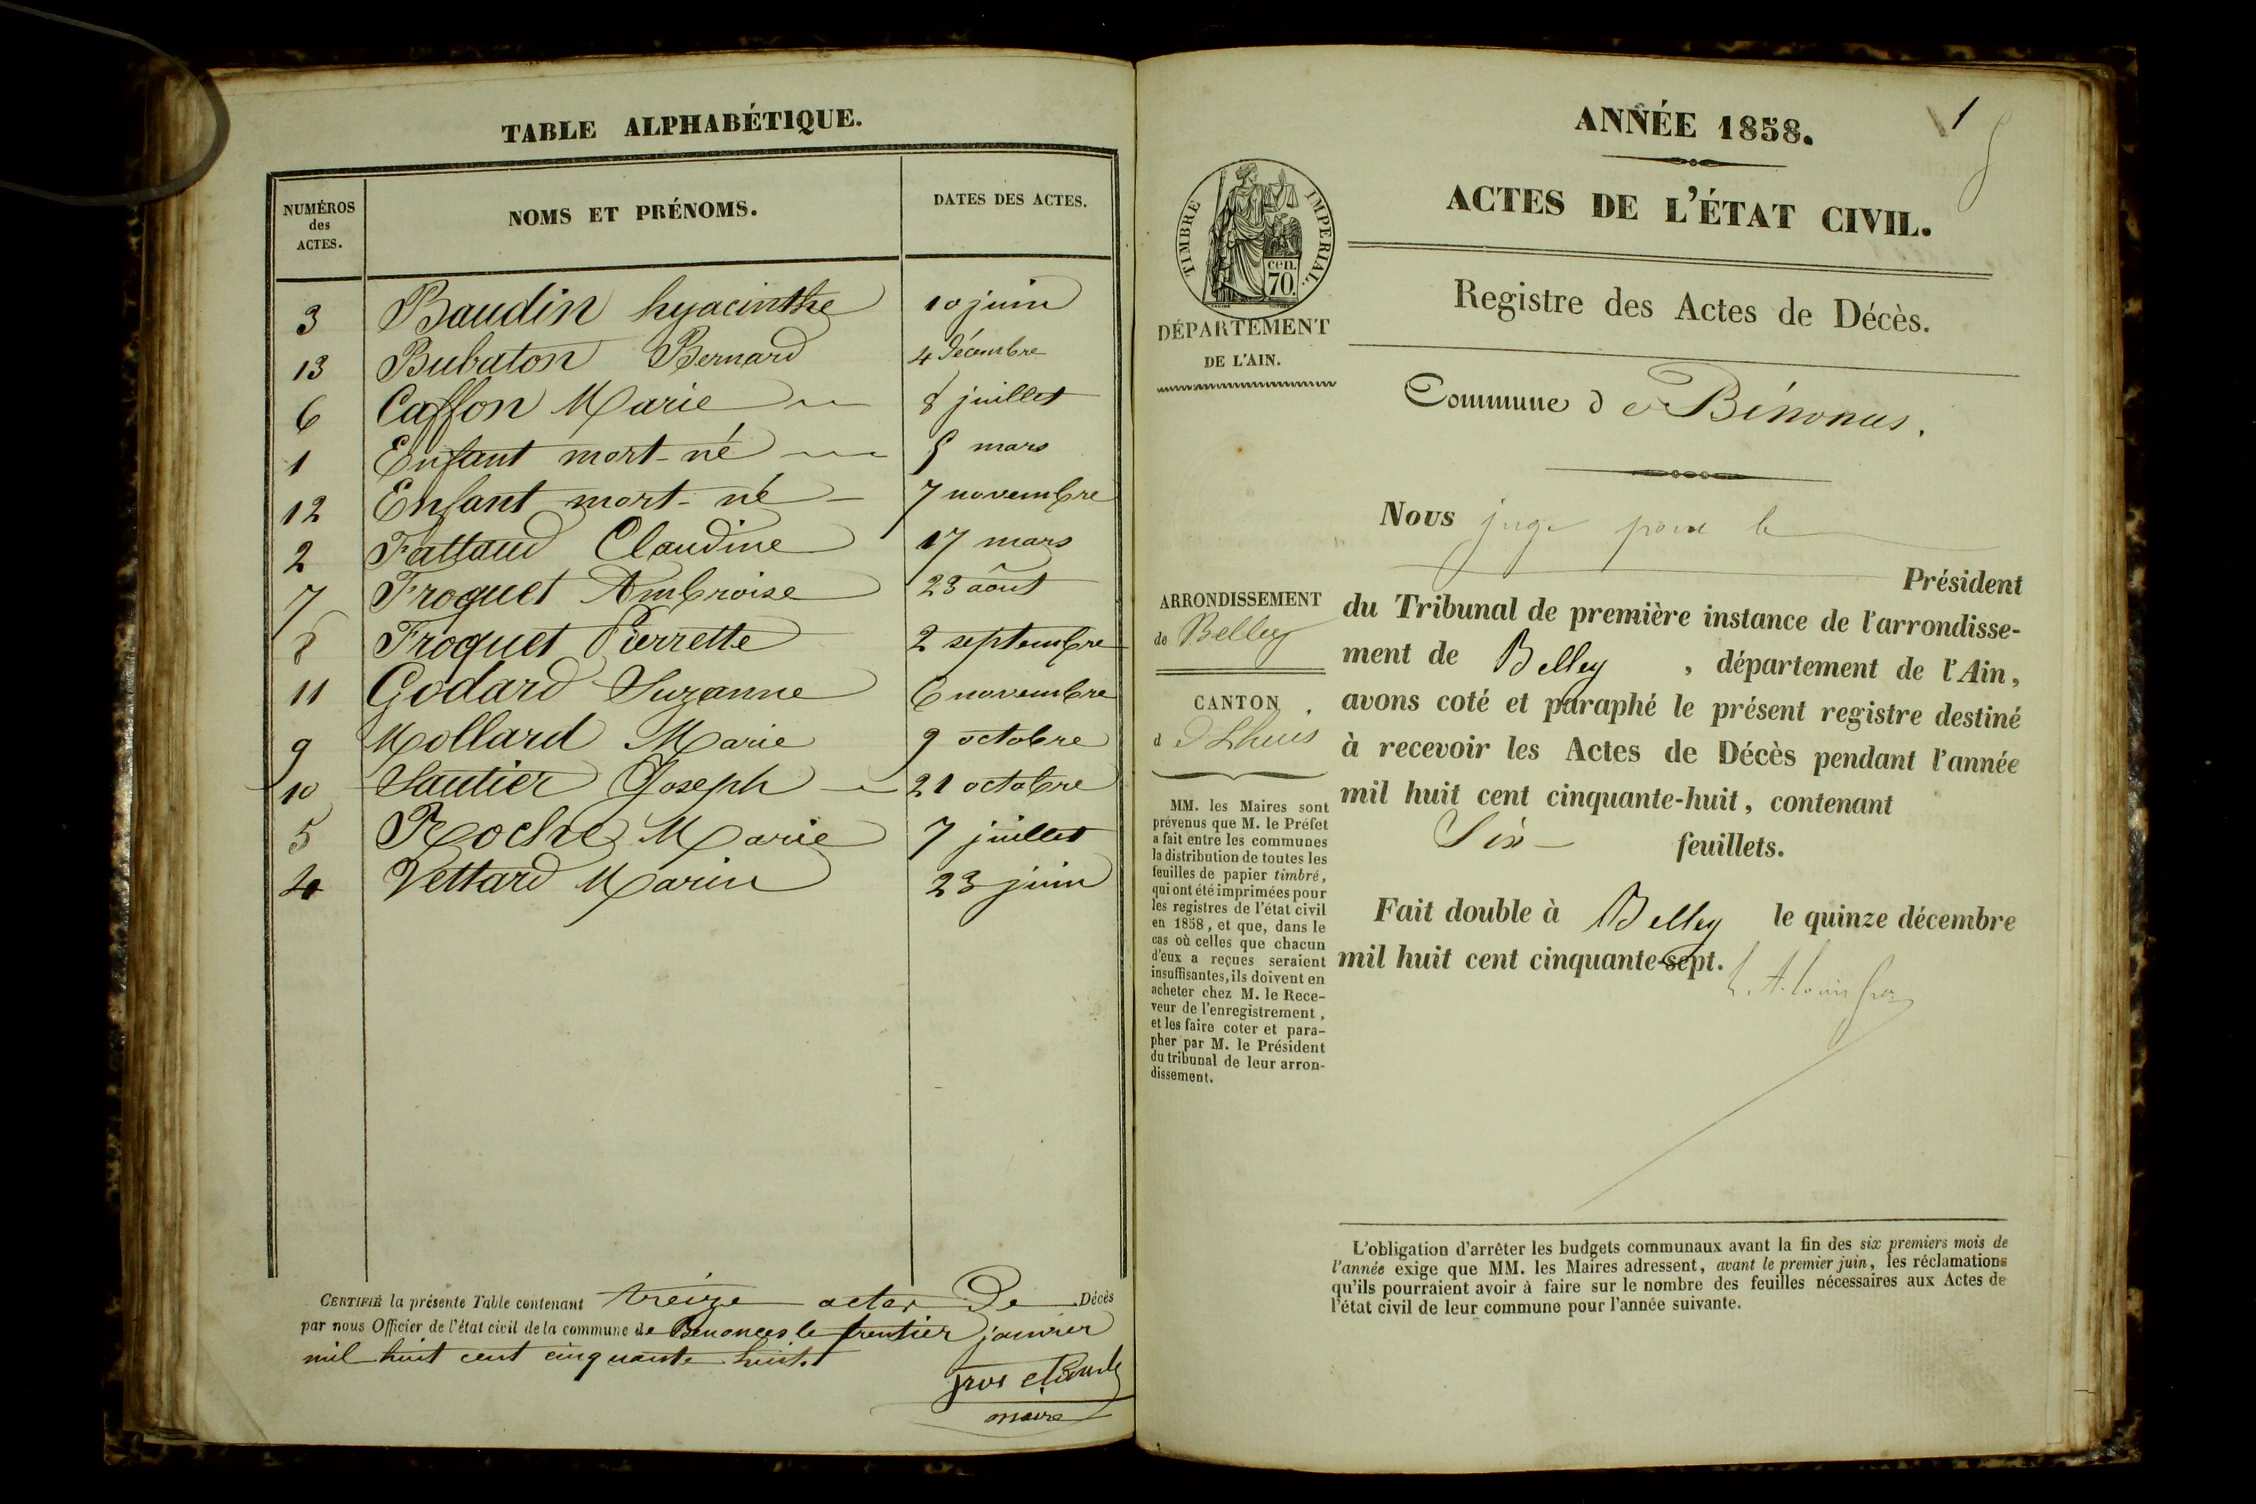 TABLE ALPHABÉTIQUE.
NUMÉROS des ACTES. NOMS ET PRÉNOMS. DATES DES ACTES.
3 Baudin hyacinthe 10 juin
13 Bubaton Bernard 4 décembre
6 Caffon Marie 8 juillet
1 Enfant mort-né 5 mars
12 Enfant mort-né 7 novembre
2 Fattaud Claudine 17 mars
7 Froquet Ambroise 23 août
8 Froquet Pierrette 2 septembre
11 Godard Suzanne 6 novembre
9 Mollard Marie 9 octobre
10 Sautier Joseph 21 octobre
5 Roche Marie 7 juillet
4 Vettard Marin 23 juin
CERTIFIÉ la présente Table contenant treize actes de Décès
par nous Officier de l'état civil de la commune de Benonces le janvier
mil huit cent cinquante huit.
maire
1
ANNÉE 1858.
ACTES DE L'ÉTAT CIVIL.
TIMBRE IMPERIAL.
cen.
70.
DÉPARTEMENT
DE L'AIN.
Registre des Actes de Décès.
Commune de Bénonces.
Nous juge pour le
Président
du Tribunal de première instance de l'arrondisse-
ment de Belley, département de l'Ain,
avons coté et paraphé le présent registre destiné
à recevoir les Actes de Décès pendant l'année
mil huit cent cinquante-huit, contenant
Six feuillets.
Fait double à Belley le quinze décembre
mil huit cent cinquante-sept.
ARRONDISSEMENT
de Belley
CANTON
d Lhuis
MM. les Maires sont
prévenus que M. le Préfet
a fait entre les communes
la distribution de toutes les
feuilles de papier timbré,
qui ont été imprimées pour
les registres de l'état civil
en 1858, et que, dans le
cas où celles que chacun
d'eux a reçues seraient
insuffisantes, ils doivent en
acheter chez M. le Rece-
veur de l'enregistrement,
et les faire coter et para-
pher par M. le Président
du tribunal de leur arron-
dissement.
L'obligation d'arrêter les budgets communaux avant la fin des six premiers mois de
l'année exige que MM. les Maires adressent, avant le premier juin, les réclamations
qu'ils pourraient avoir à faire sur le nombre des feuilles nécessaires aux Actes de
l'état civil de leur commune pour l'année suivante.